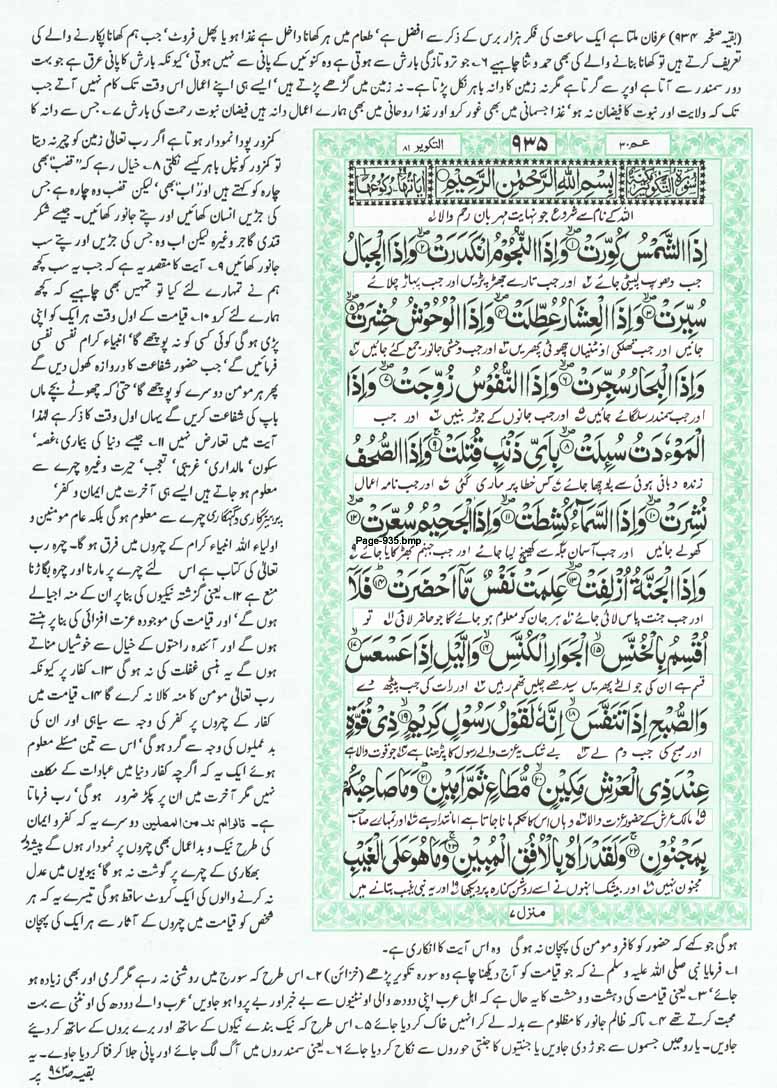 (بقیہ صفحہ ۹۳۴) عرفان ملتا ہے ایک ساعت کی فکر ہزار برس کے ذکر سے افضل ہے' طعام میں ہر کھانا داخل ہے غذا ہو یا پھل فروٹ' جب ہم کھانا پکارنے والے کی
تعریف کرتے ہیں تو کھانا بنانے والے کی بھی حمد و ثنا چاہیے ۶۔ جو ترو تازگی بارش سے ہوتی ہے وہ کنوئیں کے پانی سے نہیں ہوتی' کیونکہ بارش کا پانی عرق ہے جو بہت
دور سمندر سے آتا ہے اوپر سے گرتا ہے مگر نہ زمین کا دانہ باہر نکل پڑتا ہے۔ نہ زمین میں گڑھے پڑتے ہیں' ایسے ہی اپنے اعمال اس وقت تک کام نہیں آتے جب
تک کہ ولایت اور نبوت کا فیضان نہ ہو' غذا جسمانی میں بھی غور کرو اور غذا روحانی میں بھی ہمارے اعمال دانہ ہیں فیضان نبوت رحمت کی بارش ۷۔ جس سے دانہ کا
کمزور پودا نمودار ہوتا ہے اگر رب تعالیٰ زمین کو چیر نہ دیتا
تو کمزور کونپل باہر کیسے نکلتی ۸۔ خیال رہے کہ "قضب" بھی
چارہ کو کہتے ہیں اور 'اب' بھی' لیکن قضب وہ چارہ ہے جس
کی جڑیں انسان کھائیں اور پتے جانور کھائیں۔ جیسے شکر
قندی گاجر وغیرہ لیکن اب وہ جس کی جڑیں اور پتے سب
جانور کھائیں ۹۔ آیت کا مقصد یہ ہے کہ جب یہ سب کچھ
ہم نے تمہارے لئے کیا تو تمہیں بھی چاہیے کہ کچھ
ہمارے لئے کرو ۱۰۔ قیامت کے اول وقت ہر ایک کو اپنی
پڑی ہو گی کوئی کسی کو نہ پوچھے گا' انبیاء کرام نفسی نفسی
فرمائیں گے' جب حضور شفاعت کا دروازہ کھول دیں گے
پھر ہر مومن دوسرے کو پوچھے گا' حتیٰ کہ چھوٹے بچے ماں
باپ کی شفاعت کریں گے یہاں اول وقت کا ذکر ہے لہٰذا
آیت میں تعارض نہیں ۱۱۔ جیسے دنیا کی بیماری' غصہ'
سکون' مالداری' غریبی' تعجب' حیرت وغیرہ چہرے سے
معلوم ہو جاتے ہیں ایسے ہی آخرت میں ایمان و کفر'
پرہیزگاری و گنہگاری چہرے سے معلوم ہو گی بلکہ عام مومنین و
اولیاء اللہ انبیاء کرام کے چہروں میں فرق ہو گا۔ چہرہ رب
تعالیٰ کی کتاب ہے اس لئے چہرے پر مارنا اور چہرہ بگاڑنا
منع ہے ۱۲۔ یعنی گزشتہ نیکیوں کی بنا پر ان کے منہ اجیالے
ہوں گے' اور قیامت کی موجودہ عزت افزائی کی بنا پر ہنستے
ہوں گے اور آئندہ راحتوں کے خیال سے خوشیاں مناتے
ہوں گے یہ ہنسی غفلت کی نہ ہو گی ۱۳۔ کفار پر کیونکہ
رب تعالیٰ مومن کا منہ کالا نہ کرے گا ۱۴۔ قیامت میں
کفار کے چہروں پر کفر کی وجہ سے سیاہی اور ان کی
بد عملیوں کی وجہ سے گرد ہو گی' اس سے تین مسئلے معلوم
ہوئے ایک یہ کہ اگرچہ کفار دنیا میں عبادات کے مکلف
نہیں مگر آخرت میں ان پر پکڑ ضرور ہو گی' رب فرماتا
ہے۔ قالوا لم نک من المصلین دوسرے یہ کہ کفر و ایمان
کی طرح نیک و بد اعمال بھی چہروں پر نمودار ہوں گے پیشہ ور
بھکاری کے چہرے پر گوشت نہ ہو گا' بیویوں میں عدل
نہ کرنے والوں کی ایک کروٹ ساقط ہو گی تیسرے یہ کہ ہر
شخص کو قیامت میں چہروں کے آثار سے ہر ایک کی پہچان
ہو گی جو کہے کہ حضور کو کافر و مومن کی پہچان نہ ہو گی وہ اس آیت کا انکاری ہے۔
عم ۳۰ ۹۳۵ التکویر ۸۱
بِسْمِ اللهِ الرَّحْمٰنِ الرَّحِيْمِ
اللہ کے نام سے شروع جو نہایت مہربان رحم والا
اِذَا الشَّمْسُ كُوِّرَتْ ۱ وَاِذَا النُّجُوْمُ انْكَدَرَتْ ۲ وَاِذَا الْجِبَالُ
جب دھوپ لپیٹی جائے اور جب تارے جھڑ پڑیں اور جب پہاڑ چلائے
سُيِّرَتْ ۳ وَاِذَا الْعِشَارُ عُطِّلَتْ ۴ وَاِذَا الْوُحُوْشُ حُشِرَتْ ۵
جائیں اور جب تھلکی اونٹنیاں چھوٹی پھریں اور جب وحشی جانور جمع کئے جائیں
وَاِذَا الْبِحَارُ سُجِّرَتْ ۶ وَاِذَا النُّفُوْسُ زُوِّجَتْ ۷ وَاِذَا
اور جب سمندر سلگائے جائیں اور جب جانوں کے جوڑ بنیں اور جب
الْمَوْءٗدَةُ سُىِٕلَتْ ۸ بِاَىِّ ذَنْۢبٍ قُتِلَتْ ۹ وَاِذَا الصُّحُفُ
زندہ دبائی ہوئی سے پوچھا جائے کس خطا پر ماری گئی اور جب نامہ اعمال
نُشِرَتْ ۱۰ وَاِذَا السَّمَآءُ كُشِطَتْ ۱۱ وَاِذَا الْجَحِيْمُ سُعِّرَتْ ۱۲
Page-935.bmp
کھولے جائیں اور جب آسمان جگہ سے کھینچ لیا جائے اور جب جہنم بھڑکایا جائے
وَاِذَا الْجَنَّةُ اُزْلِفَتْ ۱۳ عَلِمَتْ نَفْسٌ مَّاۤ اَحْضَرَتْ ۱۴ فَلَاۤ
اور جب جنت پاس لائی جائے ہر جان کو معلوم ہو جائے گا جو حاضر لائی تو
اُقْسِمُ بِالْخُنَّسِ ۱۵ الْجَوَارِ الْكُنَّسِ ۱۶ وَالَّيْلِ اِذَا عَسْعَسَ ۱۷
قسم ہے ان کی جو الٹے پھریں سیدھے چلیں تھم رہیں اور رات کی جب پیٹھ دے
وَالصُّبْحِ اِذَا تَنَفَّسَ ۱۸ اِنَّهٗ لَقَوْلُ رَسُوْلٍ كَرِيْمٍ ۱۹ ذِيْ قُوَّةٍ
اور صبح کی جب دم لے بے شک یہ عزت والے رسول کا پڑھنا ہے جو قوت والا ہے
عِنْدَ ذِي الْعَرْشِ مَكِيْنٍ ۲۰ مُّطَاعٍ ثَمَّ اَمِيْنٍ ۲۱ وَمَا صَاحِبُكُمْ
مالک عرش کے حضور عزت والا وہاں اس کا حکم مانا جاتا ہے امانتدار ہے اور تمہارے صاحب
بِمَجْنُوْنٍ ۲۲ وَلَقَدْ رَاٰهُ بِالْاُفُقِ الْمُبِيْنِ ۲۳ وَمَا هُوَ عَلَى الْغَيْبِ
مجنون نہیں اور بیشک انہوں نے اسے روشن کنارہ پر دیکھا اور یہ نبی غیب بتانے میں
منزل ۷
۱۔ فرمایا نبی صلی اللہ علیہ وسلم نے کہ جو قیامت کو آج دیکھنا چاہے وہ سورہ تکویر پڑھے (خزائن) ۲۔ اس طرح کہ سورج میں روشنی نہ رہے مگر گرمی اور بھی زیادہ ہو
جائے' ۳۔ یعنی قیامت کی دہشت و وحشت کا یہ حال ہے کہ اہل عرب اپنی دودھ والی اونٹنیوں سے بے خبر اور بے پروا ہو جاویں' عرب والے دودھ کی اونٹنی سے بہت
محبت کرتے تھے ۴۔ تاکہ ظالم جانور کا مظلوم سے بدلہ لے کر انہیں خاک کر دیا جائے ۵۔ اس طرح کہ نیک بندے نیکوں کے ساتھ اور برے بروں کے ساتھ کر دیئے
جاویں۔ یا روحیں جسموں سے جوڑ دی جاویں یا جنتیوں کا جنتی حوروں سے نکاح کر دیا جائے ۶۔ یعنی سمندروں میں آگ لگ جائے اور پانی جلا کر فنا کر دیا جاوے۔ یہ
بقیہ صفحہ ۹۷۳ پر